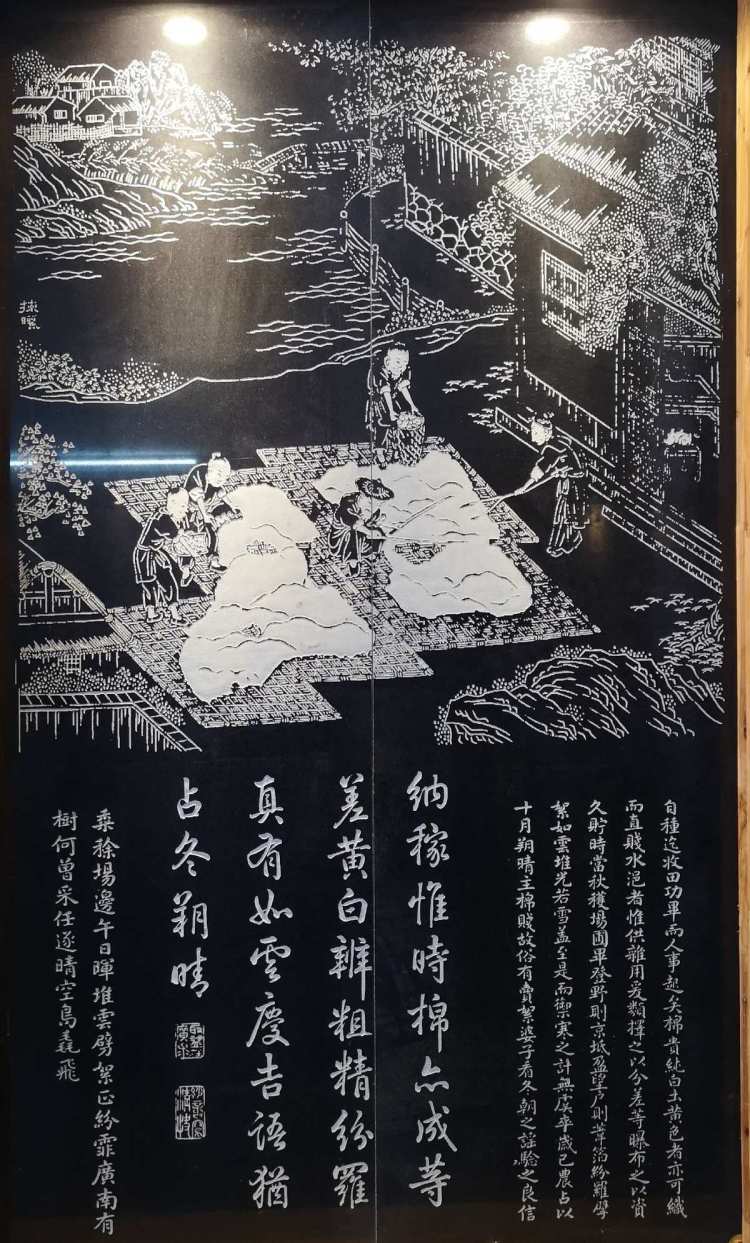 揀曬
自種迄收田功畢而人事起矣棉貴純白土黄色者亦可織
而直賤水浥者惟供雜用爰類擇之以分差等曝布之以資
久貯時當秋穫場圃畢登野則京坻盈望户則葦箔紛羅擘
絮如雲堆光若雪蓋至是而禦寒之計無虞卒歲已農占以
十月朔晴主棉賤故俗有賣絮婆子看冬朝之諺驗之良信
納稼惟時棉亦成等
差黄白辨粗精紛羅
真有如雲慶吉語猶
占冬朔晴
乘稌場邊午日暉堆雲劈絮正紛霏廣南有
樹何曾采任逐晴空鳥毳飛